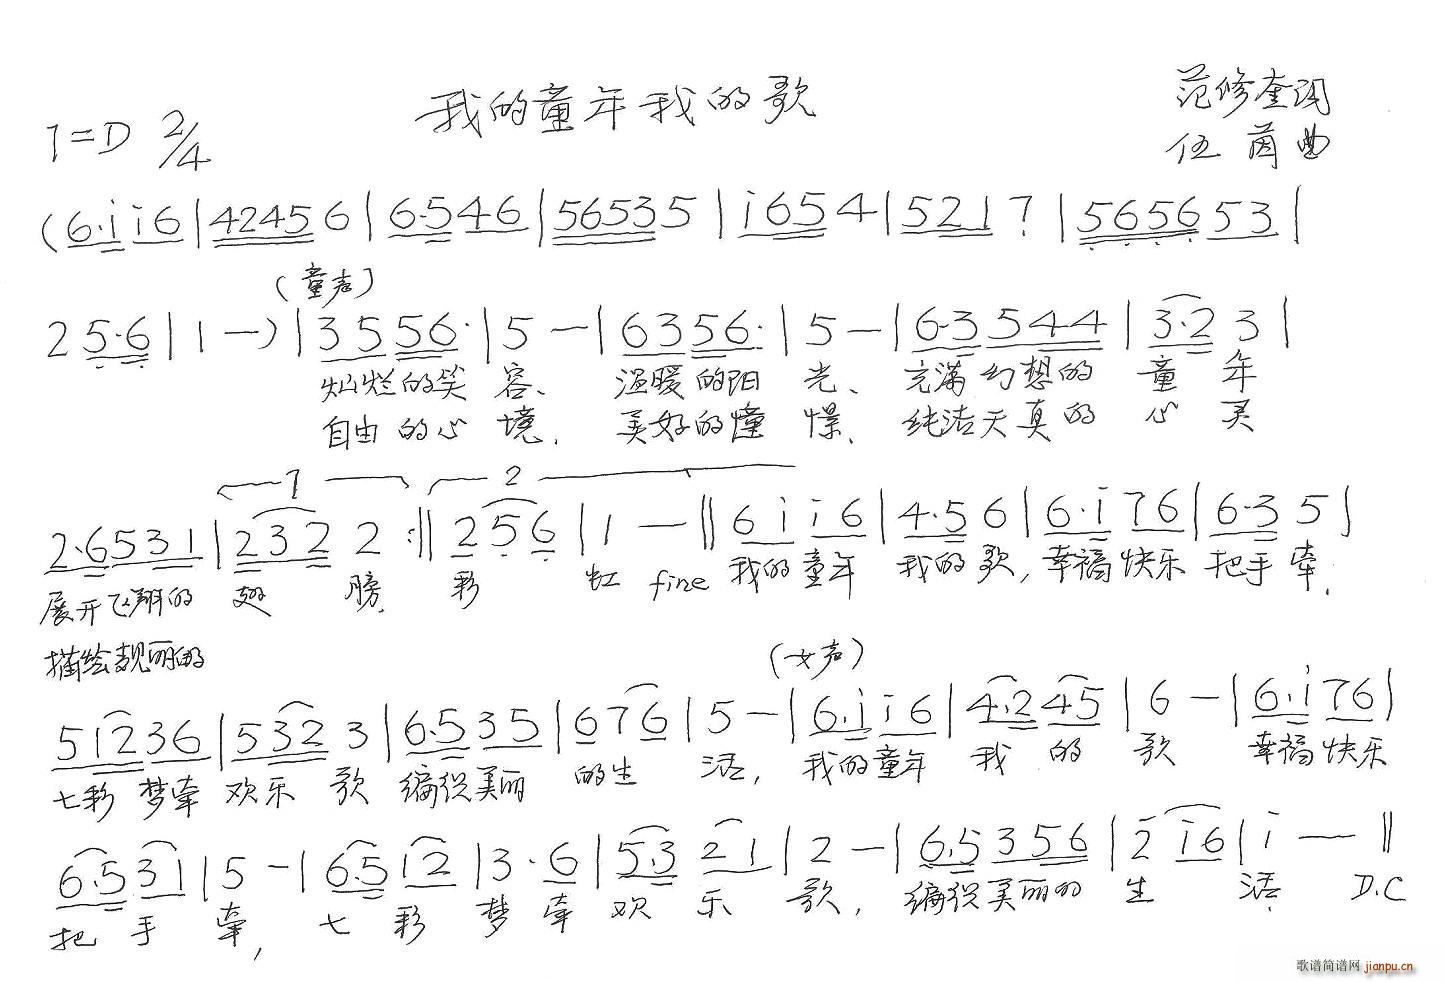 我的童年我的歌
范修奎词
1=D 2/4
伍茵曲
(6·i i6|42456|6·546|56535|i654|521?|565653|
(童声)
25·6|1—)|3556·|5—|6356·|5—|6·3544|3·23|
灿烂的笑容、温暖的阳光、充满幻想的童年
自由的心境、美好的憧憬、纯洁天真的心灵
1 2
2·6531|2322:||256|1—||6i i6|4·56|6·i76|6·35|
展开飞翔的翅膀 彩虹 fine 我的童年我的歌,幸福快乐把手牵.
描绘靓丽的
(女声)
51236|5323|6·535|676|5—|6·i i6|4·245|6—|6·i76|
七彩梦牵欢乐歌编织美丽的生活,我的童年我的歌 幸福快乐
6·531|5—|6·512|3·6|5·321|2—|6·5356|2i6|i—||
把手牵,七彩梦牵欢乐歌,编织美丽的生活. D.C
歌谱简谱网 jianpu.cn